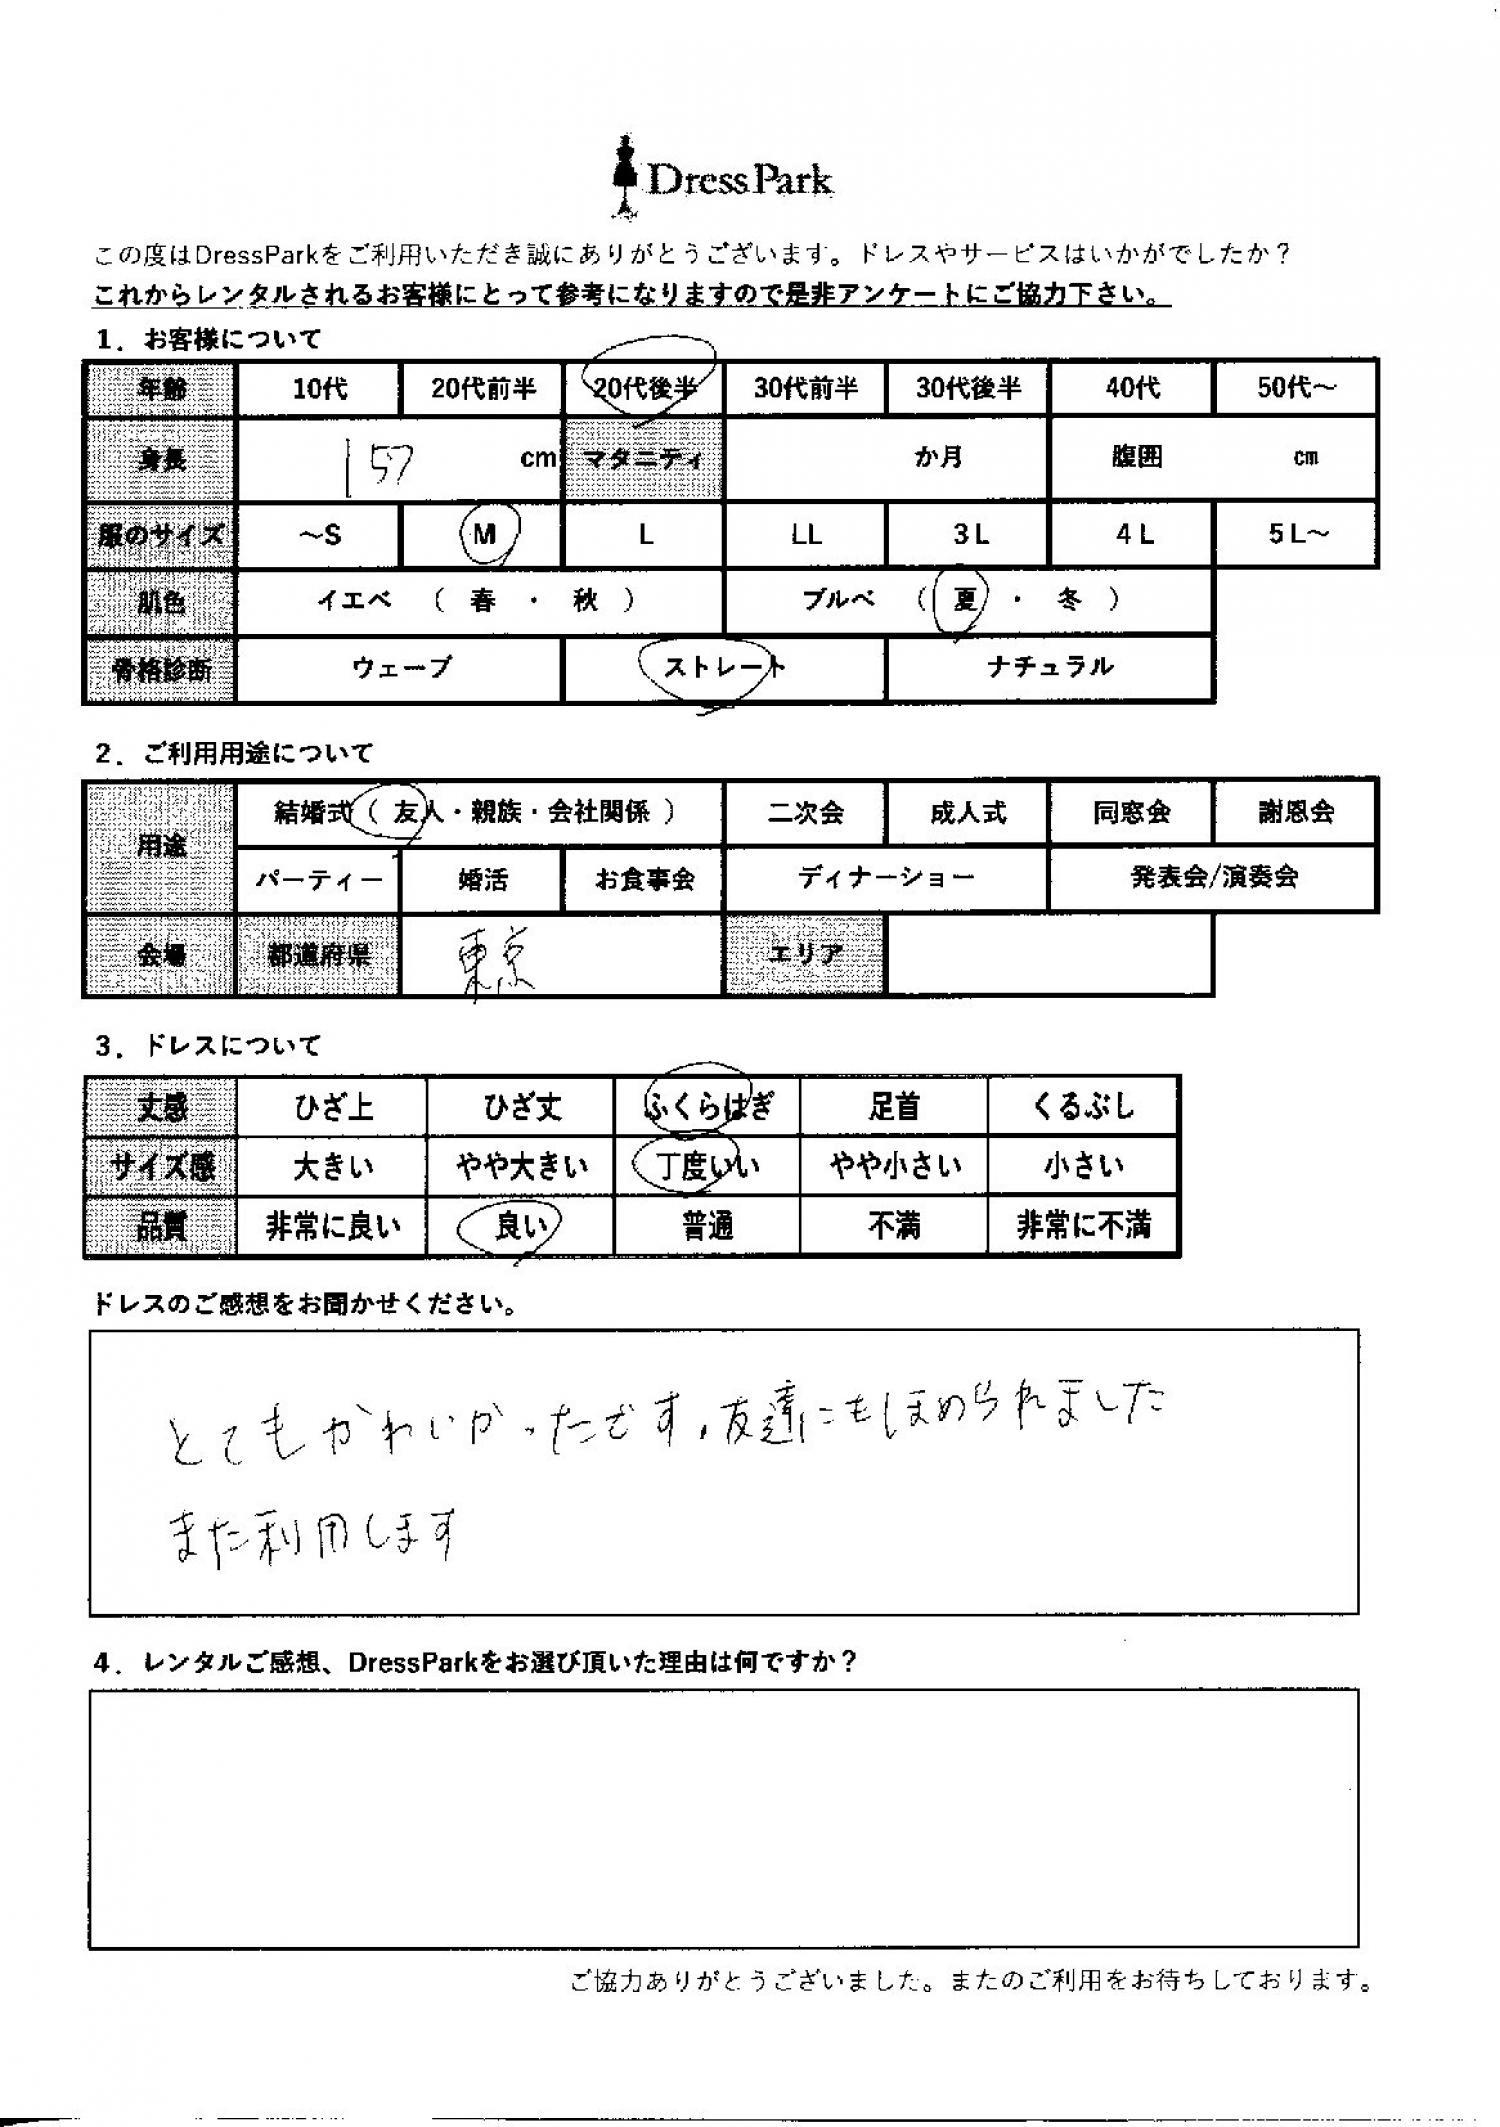 DressPark
この度はDressParkをご利用いただき誠にありがとうございます。ドレスやサービスはいかがでしたか？
これからレンタルされるお客様にとって参考になりますので是非アンケートにご協力下さい。
1．お客様について
年齢 10代 20代前半 20代後半 30代前半 30代後半 40代 50代～
身長 157 cm マタニティ か月 腹囲 cm
服のサイズ ～S M L LL 3L 4L 5L～
肌色 イエベ （ 春 ・ 秋 ） ブルベ （ 夏 ・ 冬 ）
骨格診断 ウェーブ ストレート ナチュラル
2．ご利用用途について
用途 結婚式（ 友人・親族・会社関係 ） 二次会 成人式 同窓会 謝恩会
パーティー 婚活 お食事会 ディナーショー 発表会/演奏会
会場 都道府県 東京 エリア
3．ドレスについて
丈感 ひざ上 ひざ丈 ふくらはぎ 足首 くるぶし
サイズ感 大きい やや大きい 丁度いい やや小さい 小さい
品質 非常に良い 良い 普通 不満 非常に不満
ドレスのご感想をお聞かせください。
とてもかわいかったです。友達にもほめられました
また利用します
4．レンタルご感想、DressParkをお選び頂いた理由は何ですか？
ご協力ありがとうございました。またのご利用をお待ちしております。